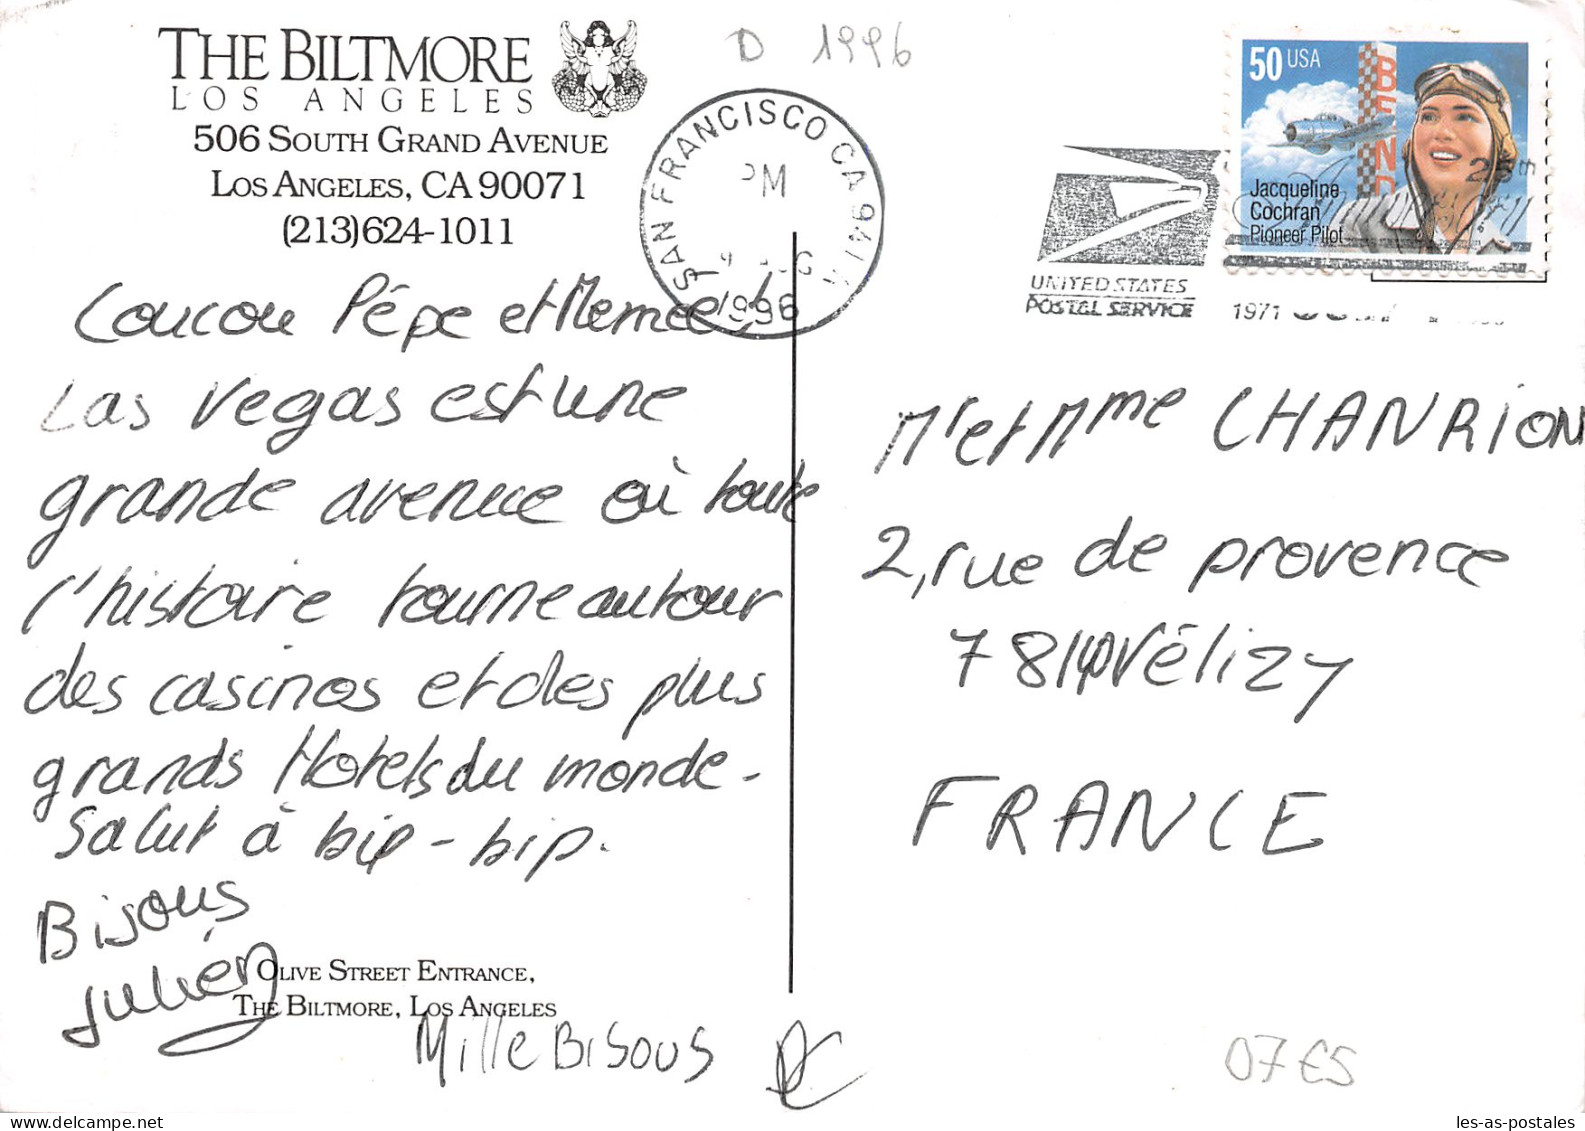 THE BILTMORE
LOS ANGELES
506 SOUTH GRAND AVENUE
LOS ANGELES, CA 90071
(213)624-1011
D 1996
SAN FRANCISCO CA 941
PM
1996
UNITED STATES
POSTAL SERVICE
1971
25th
Anniversary
50 USA
BEND
Jacqueline
Cochran
Pioneer Pilot
Coucou Pépe et Memee!
Las Vegas est une
grande avenue où toute
l'histoire tourne autour
des casinos et des plus
grands Hotels du monde.
Salut à bip-bip.
Bisous
Julien
OLIVE STREET ENTRANCE,
THE BILTMORE, LOS ANGELES
Mille Bisous
Mr et Mme CHANRION
2, rue de provence
78140 Vélizy
FRANCE
07 E5
les-as-postales